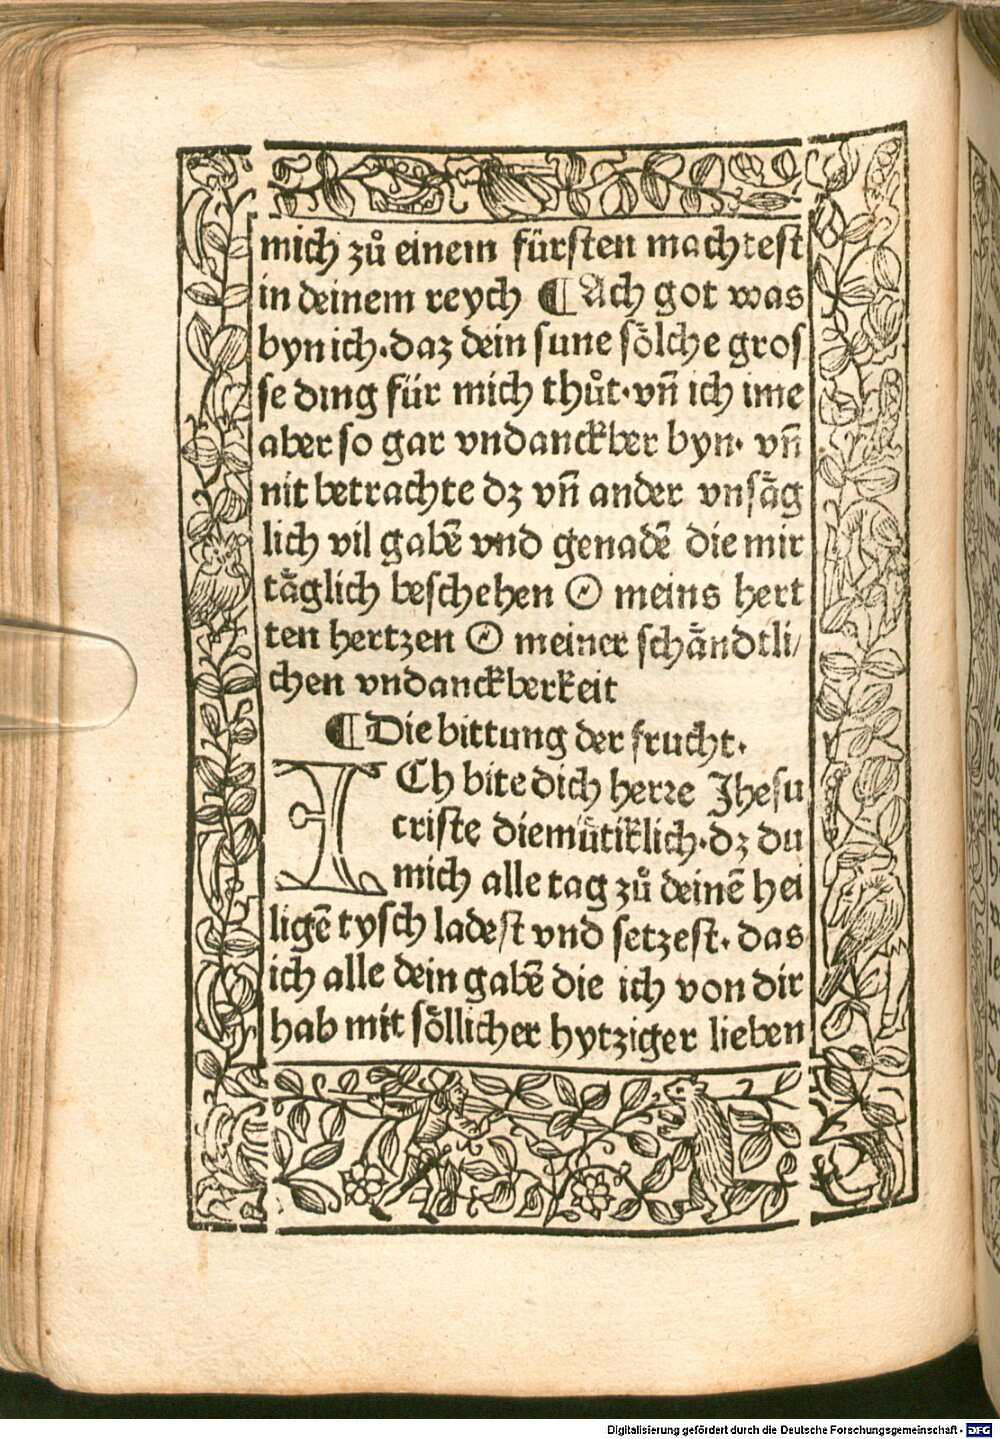 mich zů einem fürsten machtest
in deinem reych ¶ Ach got was
byn ich·daz dein sune sölche gros
se ding für mich thůt·vn̄ ich ime
aber so gar vndanckber byn· vn̄
nit betrachte dz vn̄ ander vnsäg
lich vil gabē vnd genadē die mir
täglich beschehen O meins hert
ten hertzen O meiner schändtli/
chen vndanckberkeit
¶ Die bittung der frucht·
ICh bite dich herre Jhesu
criste diemütiklich·dz du
mich alle tag zů deinē hei
ligē tysch ladest vnd setzest· das
ich alle dein gabē die ich von dir
hab mit söllicher hytziger lieben
Digitalisierung gefördert durch die Deutsche Forschungsgemeinschaft - DFG